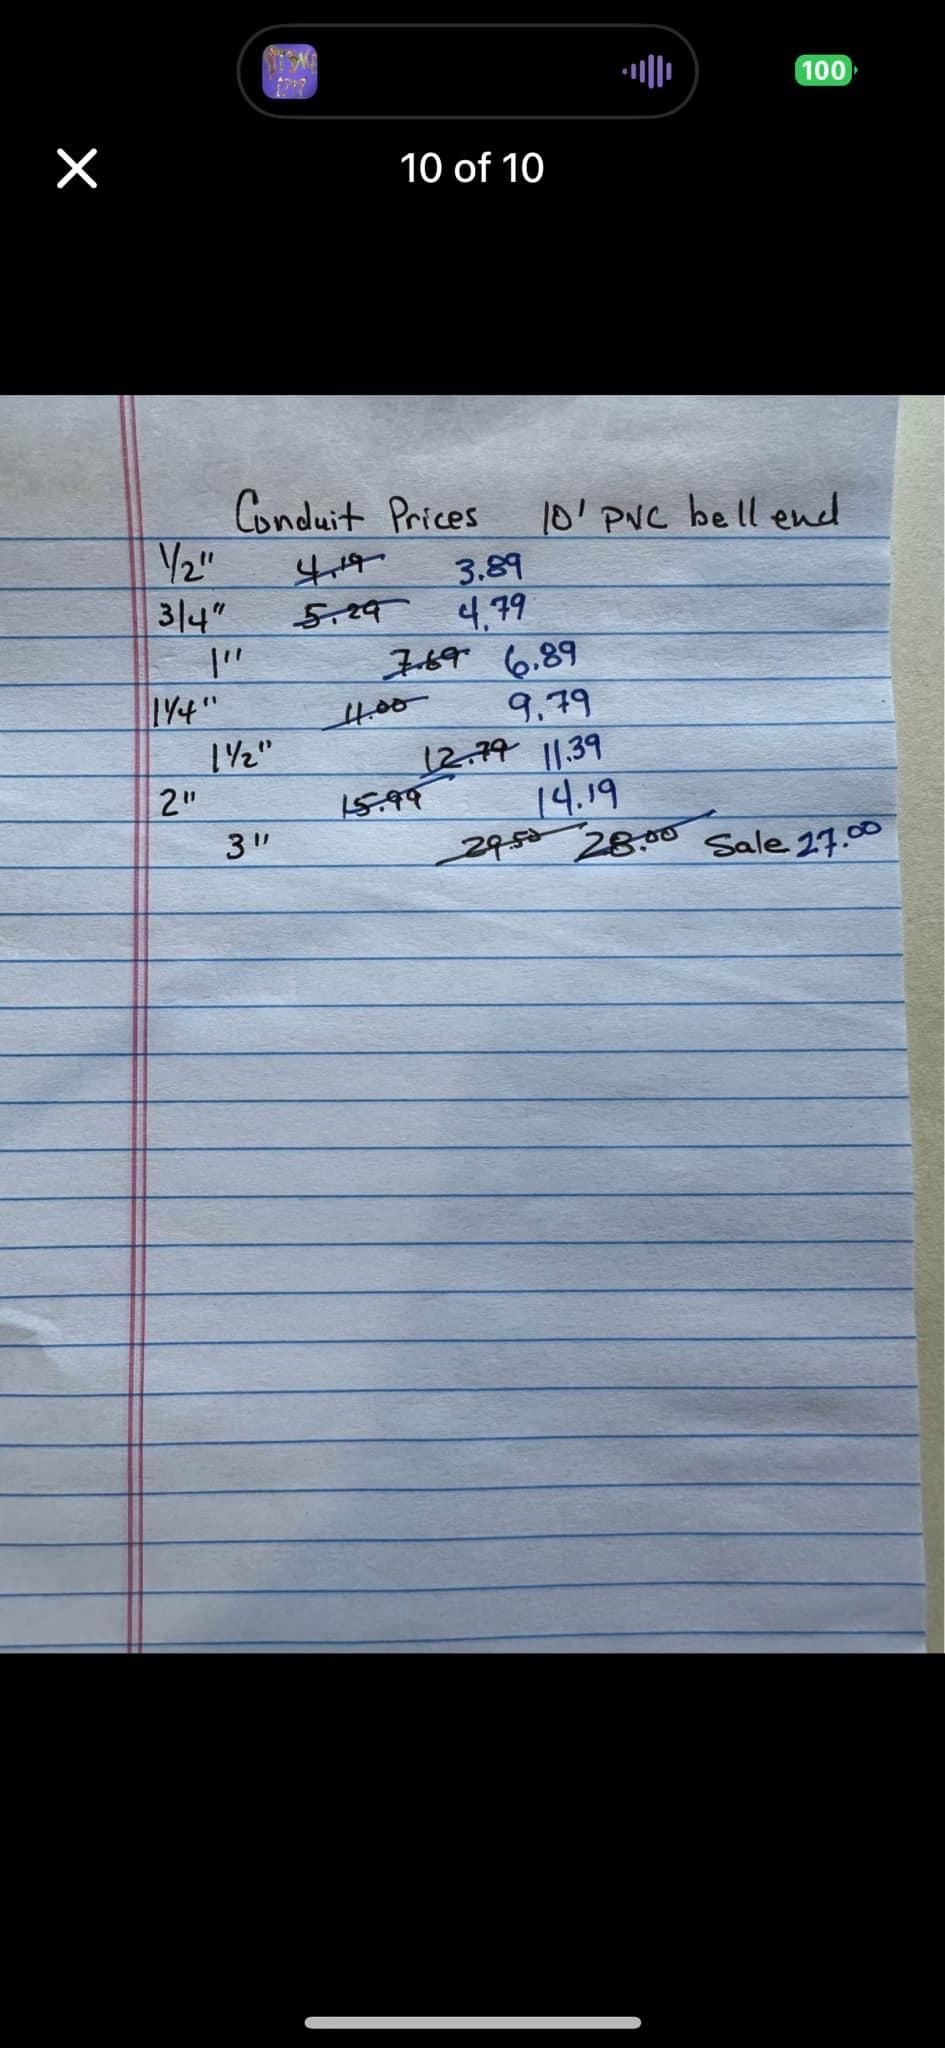 100
10 of 10
Conduit Prices 10' PVC bell end
1/2" 4.19 3.89
3/4" 5.29 4.79
1" 7.69 6.89
1 1/4" 11.00 9.79
1 1/2" 12.79 11.39
2" 15.99 14.19
3" 29.50 28.00 Sale 27.00